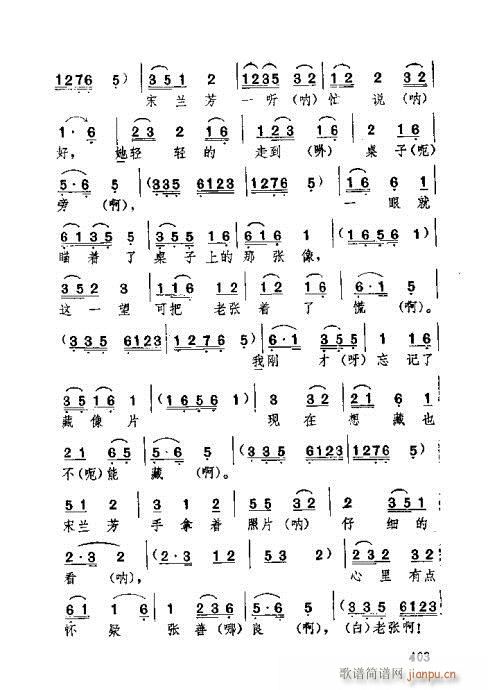 1276 5) | 351 2 | 1235 32 | 12 2 32 |
宋兰芳 一听(呐)忙 说(呐)
1·6 | 23 2 16 | 123 32 | 2 16 |
好，她轻 轻的 走到(哪)桌子(呢)
5·6 5 | (335 6123 | 1276 5) | 16 61 |
旁(啊)， 一眼就
61 35 5 | 355 16 | 61 65 | (1656 1) |
瞄着了桌子上的那张像，
352 352 | 116 12 | 12 16 | 6·1 5 |
这一望可把老张着了慌(啊)。
(335 6123 | 1276 5) | 6·1 35 | 1 16 |
我刚才(呀)忘记了
3516 1 | (1656 1) | 3 32 | 21 61 |
藏像片 现在想藏也
21 65 | 3·5 65 | (335 6123 | 1276 5) |
不(呢)能藏(啊)。
51 2 | 3·1 2 | 55 32 | 2 351 |
宋兰芳 手拿着 照片(呐) 仔细的
2·3 2 | (2·3 12 | 53 2) | 332 32 |
看(呐)， 心里有点
61 6 1 | 1 236 | 5·6 5 | (335 6123 |
怀疑 张善(哪)良(啊)，(白)老张啊！
403
歌谱简谱网
jianpu.cn